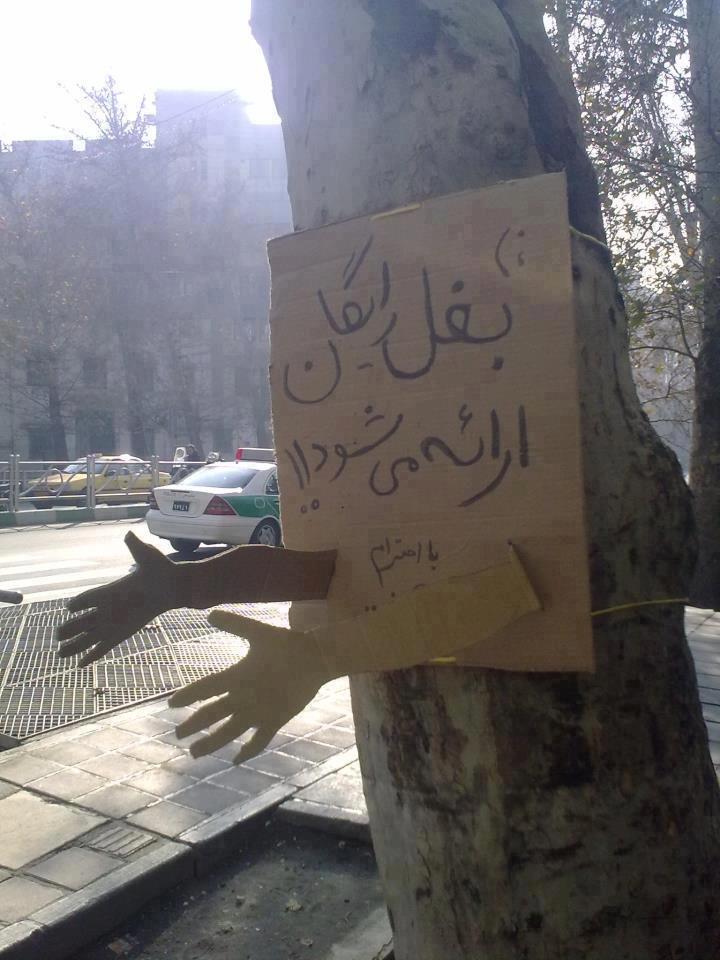 :)
بغل رایگان
ارائه می شود!!
با احترام